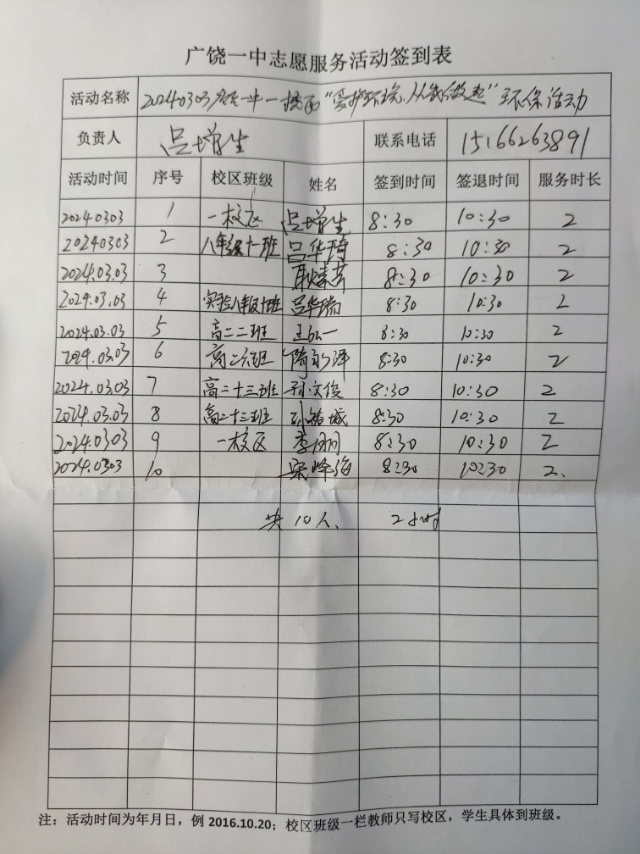 广饶一中志愿服务活动签到表
活动名称 20240303广饶一中一校区"爱护环境,从我做起"环保活动
负责人 吕增生 联系电话 15166263891
活动时间 序号 校区班级 姓名 签到时间 签退时间 服务时长
2024.03.03 1 一校区 吕增生 8:30 10:30 2
20240303 2 八年级十班 吕华琦 8:30 10:30 2
2024.03.03 3 8:30 10:30 2
2024.03.03 4 实验八年级十班 吕华瑞 8:30 10:30 2
2024.03.03 5 高二二班 王弘一 8:30 10:30 2
2024.03.03 6 高二六班 8:30 10:30 2
2024.03.03 7 高二十三班 孙文俊 8:30 10:30 2
2024.03.03 8 高二十三班 8:30 10:30 2
2024.0303 9 一校区 8:30 10:30 2
2024.0303 10 梁峰海 8:30 10:30 2.
共10人、 2小时
注：活动时间为年月日，例 2016.10.20；校区班级一栏教师只写校区，学生具体到班级。